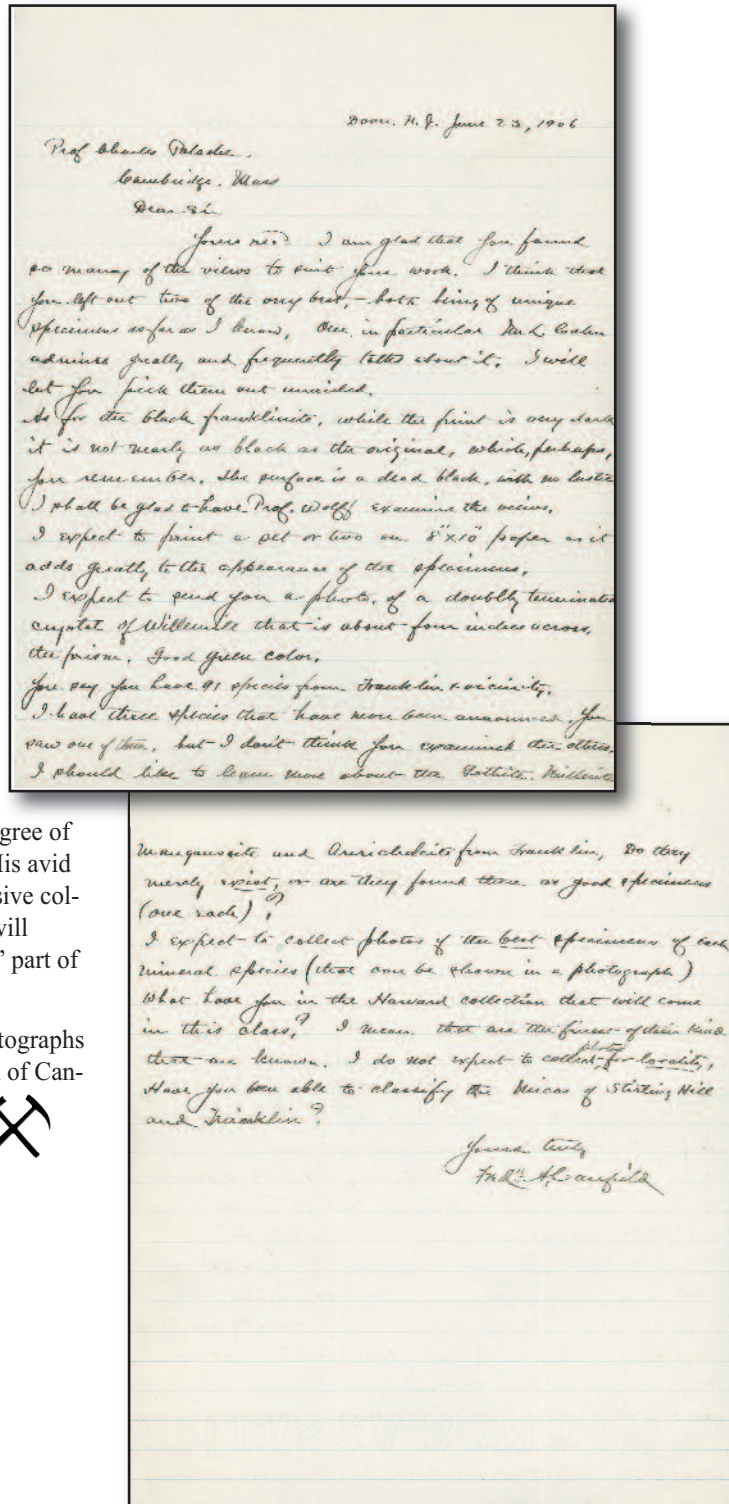 Dover. N. J. June 23, 1906
Prof Charles Palache.
Cambridge. Mass
Dear Sir
Yours rec'd I am glad that you found
so many of the views to suit your work. I think that
you left out two of the very best, – both being of unique
specimens as far as I know, One in particular
admires greatly and frequently talks about it. I will
let you pick them out unaided.
As for the black franklinite, while the print is very dark
it is not nearly as black as the original, which, perhaps,
you remember. The surface is a dead black, with no lustre
I shall be glad to have Prof. Wolff examine the views.
I expect to print a set or two on 8"x10" paper as it
adds greatly to the appearance of the specimens.
I expect to send you a photo. of a doubly terminated
crystal of Willemite that is about four inches across.
the prism. Good green color.
You say you have 91 species from Franklin & vicinity.
I have three species that have not been announced. You
saw one of them, but I don't think you examined the others.
I should like to learn more about the Goethite. Millerite
gree of
His avid
sive col-
will
” part of
tographs
n of Can-
Manganosite and Aurichalcite from Franklin, Do they
merely exist, or are they found there as good specimens
(one each)?
I expect to collect photos of the best specimens of each
mineral species (that can be shown in a photograph)
What have you in the Harvard collection that will come
in this class? I mean that are the finest of their kind
photos
that are known. I do not expect to collect for locality,
Have you been able to classify the Micas of Stirling Hill
and Franklin?
Yours truly
Fred'k A. Canfield